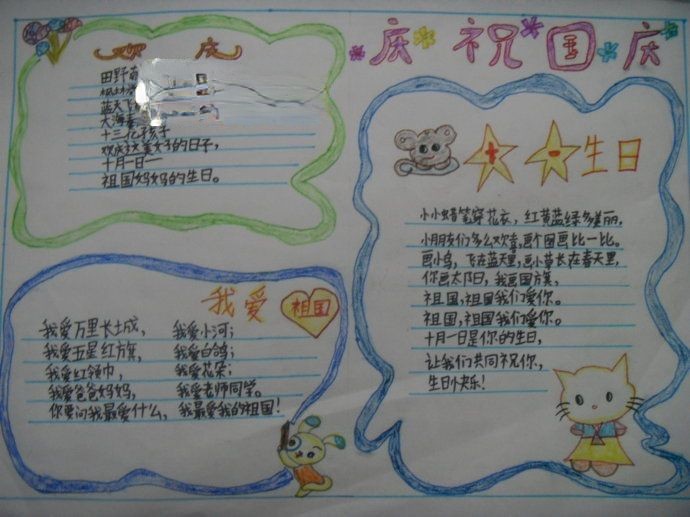 庆祝国庆
欢庆
田野
蓝天飞
大海
十三亿孩子
欢庆这美好的日子，
十月一日——
祖国妈妈的生日。
十一生日
小小蜡笔穿花衣，红黄蓝绿多美丽，
小朋友们多么欢喜，画个图画比一比。
画小鸟，飞在蓝天里，画小草长在春天里，
你画太阳，我画国旗，
祖国，祖国我们爱你。
祖国，祖国我们爱你。
十月一日是你的生日，
让我们共同祝你，
生日快乐！
我爱祖国
我爱万里长城， 我爱小河；
我爱五星红旗， 我爱白鸽；
我爱红领巾， 我爱花朵；
我爱爸爸妈妈， 我爱老师同学。
你要问我最爱什么， 我最爱我的祖国！